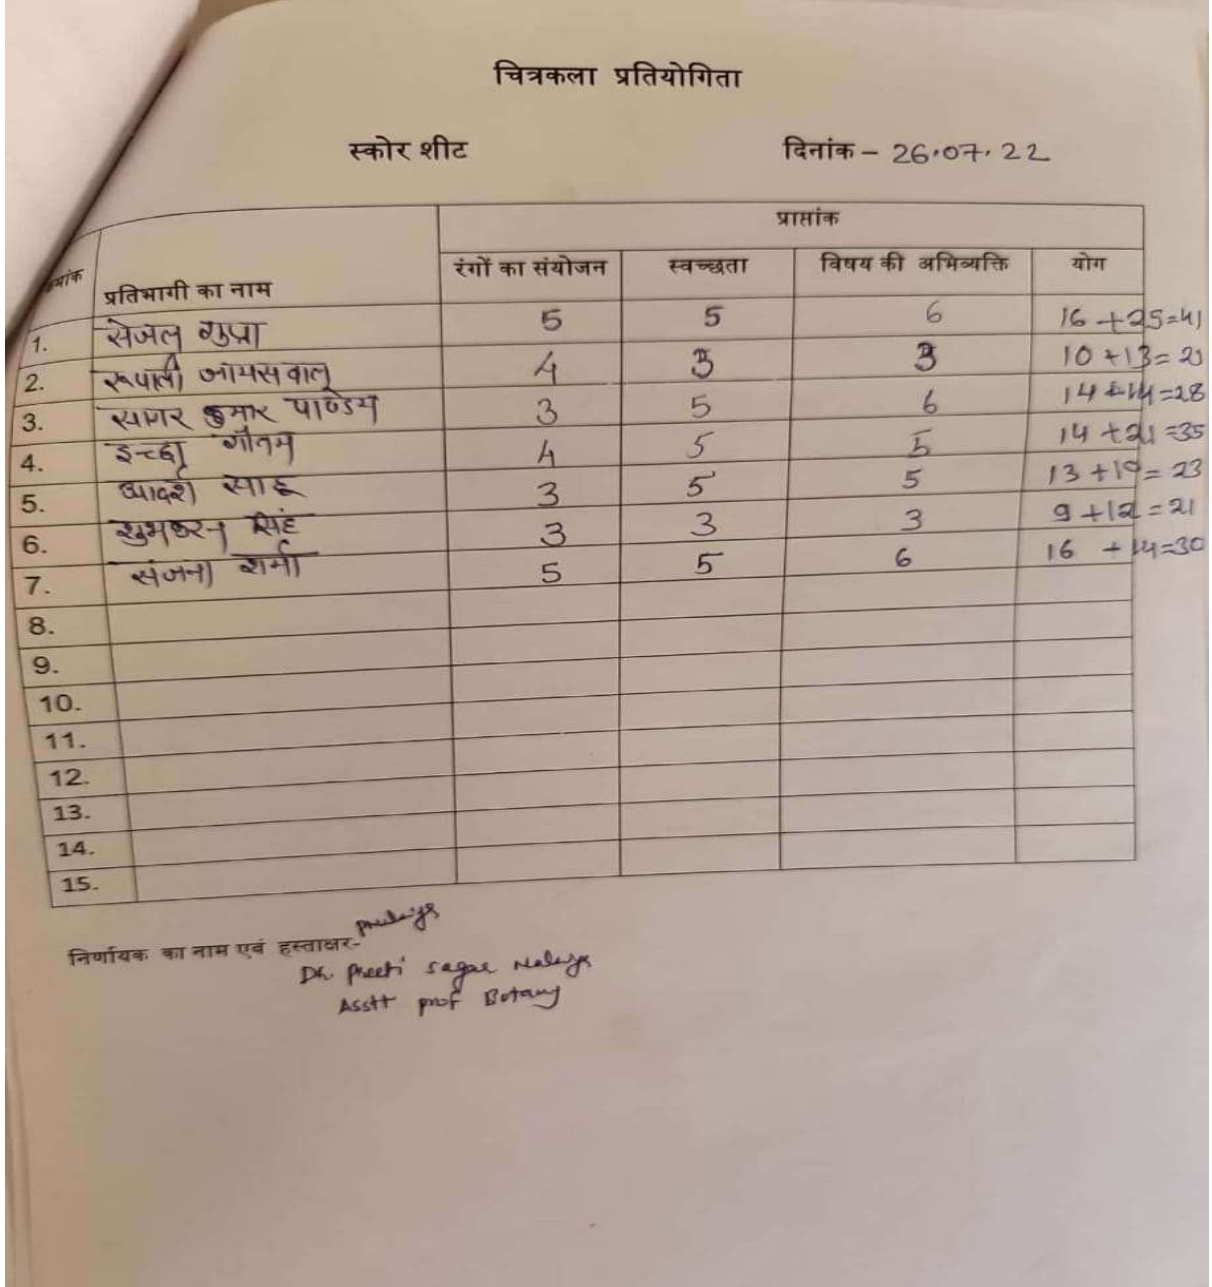 चित्रकला प्रतियोगिता
स्कोर शीट दिनांक – 26.07.22
प्राप्तांक
मांक प्रतिभागी का नाम रंगों का संयोजन स्वच्छता विषय की अभिव्यक्ति योग
1. सेजल गुप्ता 5 5 6 16 +25=41
2. रूपाली जायसवाल 4 3 3 10 +13= 23
3. सागर कुमार पाण्डेय 3 5 6 14 +14=28
4. इच्छा गौतम 4 5 5 14 +21 =35
5. आदर्श साहू 3 5 5 13 +10= 23
6. सिंह 3 3 3 9 +12 = 21
7. संजना शर्मा 5 5 6 16 +14=30
8.
9.
10.
11.
12.
13.
14.
15.
निर्णायक का नाम एवं हस्ताक्षर-
Dr. Preeti Sagar
Asstt prof Botany